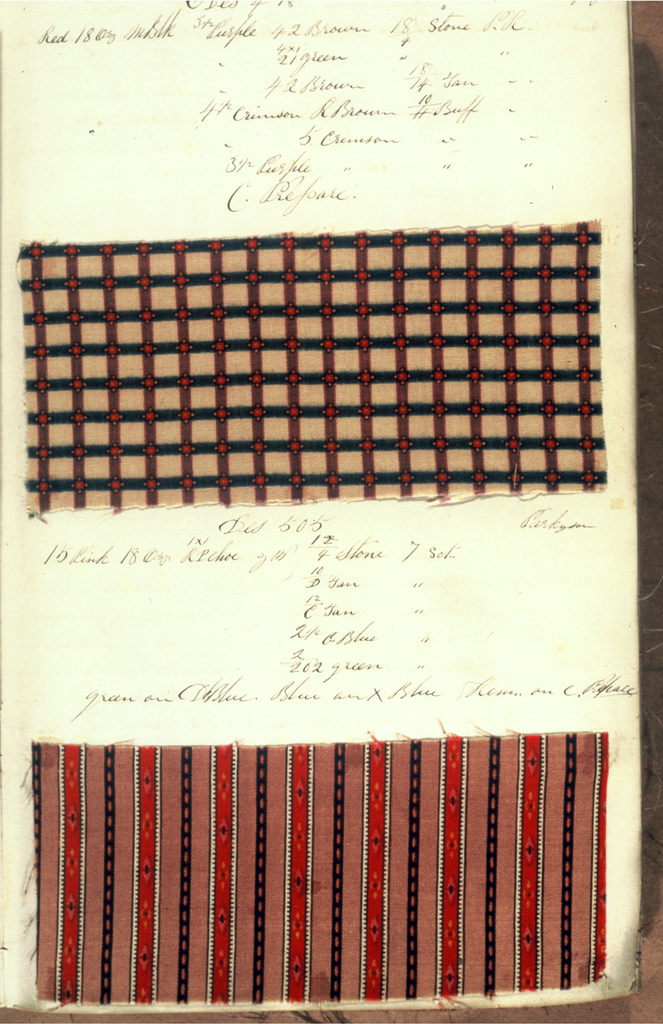 Des 4 18
Red 18 Oz M Blk 3½ Purple 42 Brown 18/4 Stone P.R.
" 4x1 21 green " "
" 42 Brown 18/14 Tan " "
4½ Crimson R Brown 10/4 Buff "
" 5 Crimson " "
3½ Purple " " "
C. Prepare.
Des 505 Parkyson
15 Pink 18 Oz 1x1 12/4 Stone 7 Sct.
10/D Tan "
12/C Tan "
2½ C Blue "
2/202 green "
green on Blue. Blue on X Blue Rem. on C. Prepare